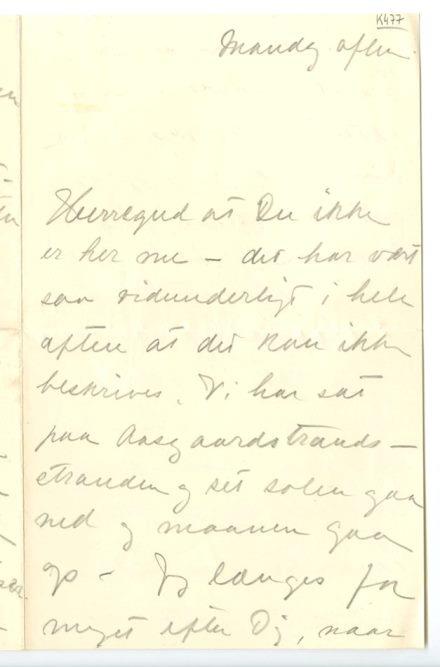 K477
Mandag aften.
Herregud at Du ikke
er her nu – det har vært
saa vidunderligt i hele
aften at det kan ikke
beskrives. Vi har sat
paa Aasgaardstrands–
stranden og set solen gaa
ned og maanen gaa
op – Jeg længes for
meget efter Dig, naar